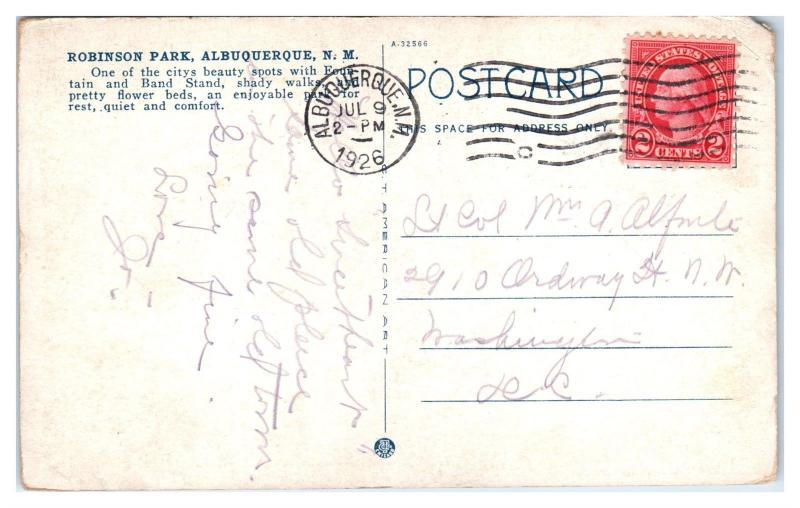 ROBINSON PARK, ALBUQUERQUE, N. M.
One of the citys beauty spots with Foun-
tain and Band Stand, shady walks, and
pretty flower beds, an enjoyable park for
rest, quiet and comfort.
A-32566
POST CARD
THIS SPACE FOR ADDRESS ONLY
ALBUQUERQUE, N.M.
JUL 9
2-PM
1926
UNITED STATES POSTAGE
2 CENTS 2
sweetheart"
same old place
the same old town.
Going fine.
Love
Jo."
AMERICAN ART
Lt Col Wm A.
2910 Ordway St. N.W.
Washington
D.C.